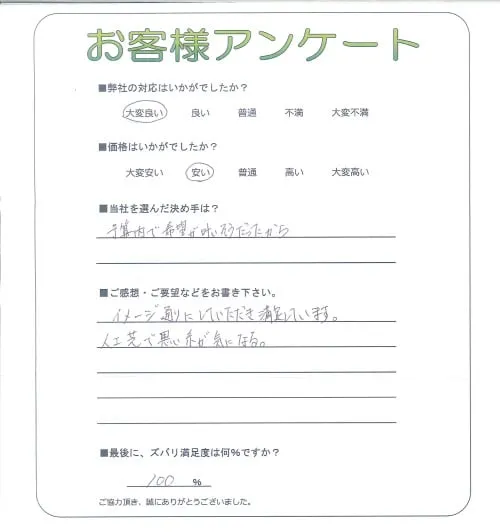 お客様アンケート
■弊社の対応はいかがでしたか?
大変良い 良い 普通 不満 大変不満
■価格はいかがでしたか?
大変安い 安い 普通 高い 大変高い
■当社を選んだ決め手は?
予算内で希望が叶いそうだったから
■ご感想・ご要望などをお書き下さい。
イメージ通りにしていただき満足しています。
人工芝で黒い糸が気になる。
■最後に、ズバリ満足度は何%ですか?
100 %
ご協力頂き、誠にありがとうございました。